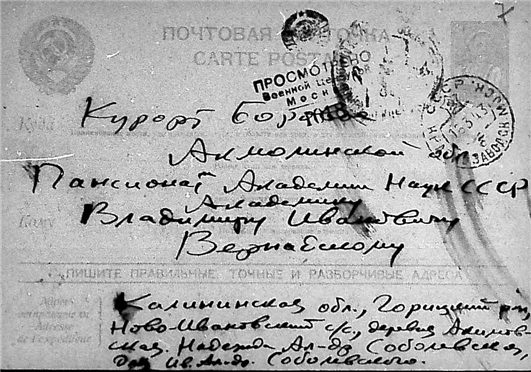 ПОЧТОВАЯ КАРТОЧКА
CARTE POSTALE
ПРОСМОТРЕНО
Военной Цензурой
Москва
Куда
Курорт Боровое
Акмолинской обл.
Пансионат Академии Наук СССР
Академику
Кому
Владимиру Ивановичу
Вернадскому
ПИШИТЕ ПРАВИЛЬНЫЕ, ТОЧНЫЕ И РАЗБОРЧИВЫЕ АДРЕСА
Адрес
отправителя
Adresse
de l'expéditeur
Калининская обл., Горицкий р-н,
Ново-Ивановский с/с, деревня Акинов-
ская, Надежда Ал-др. Соболевская,
Ив. Ал-др. Соболевского.